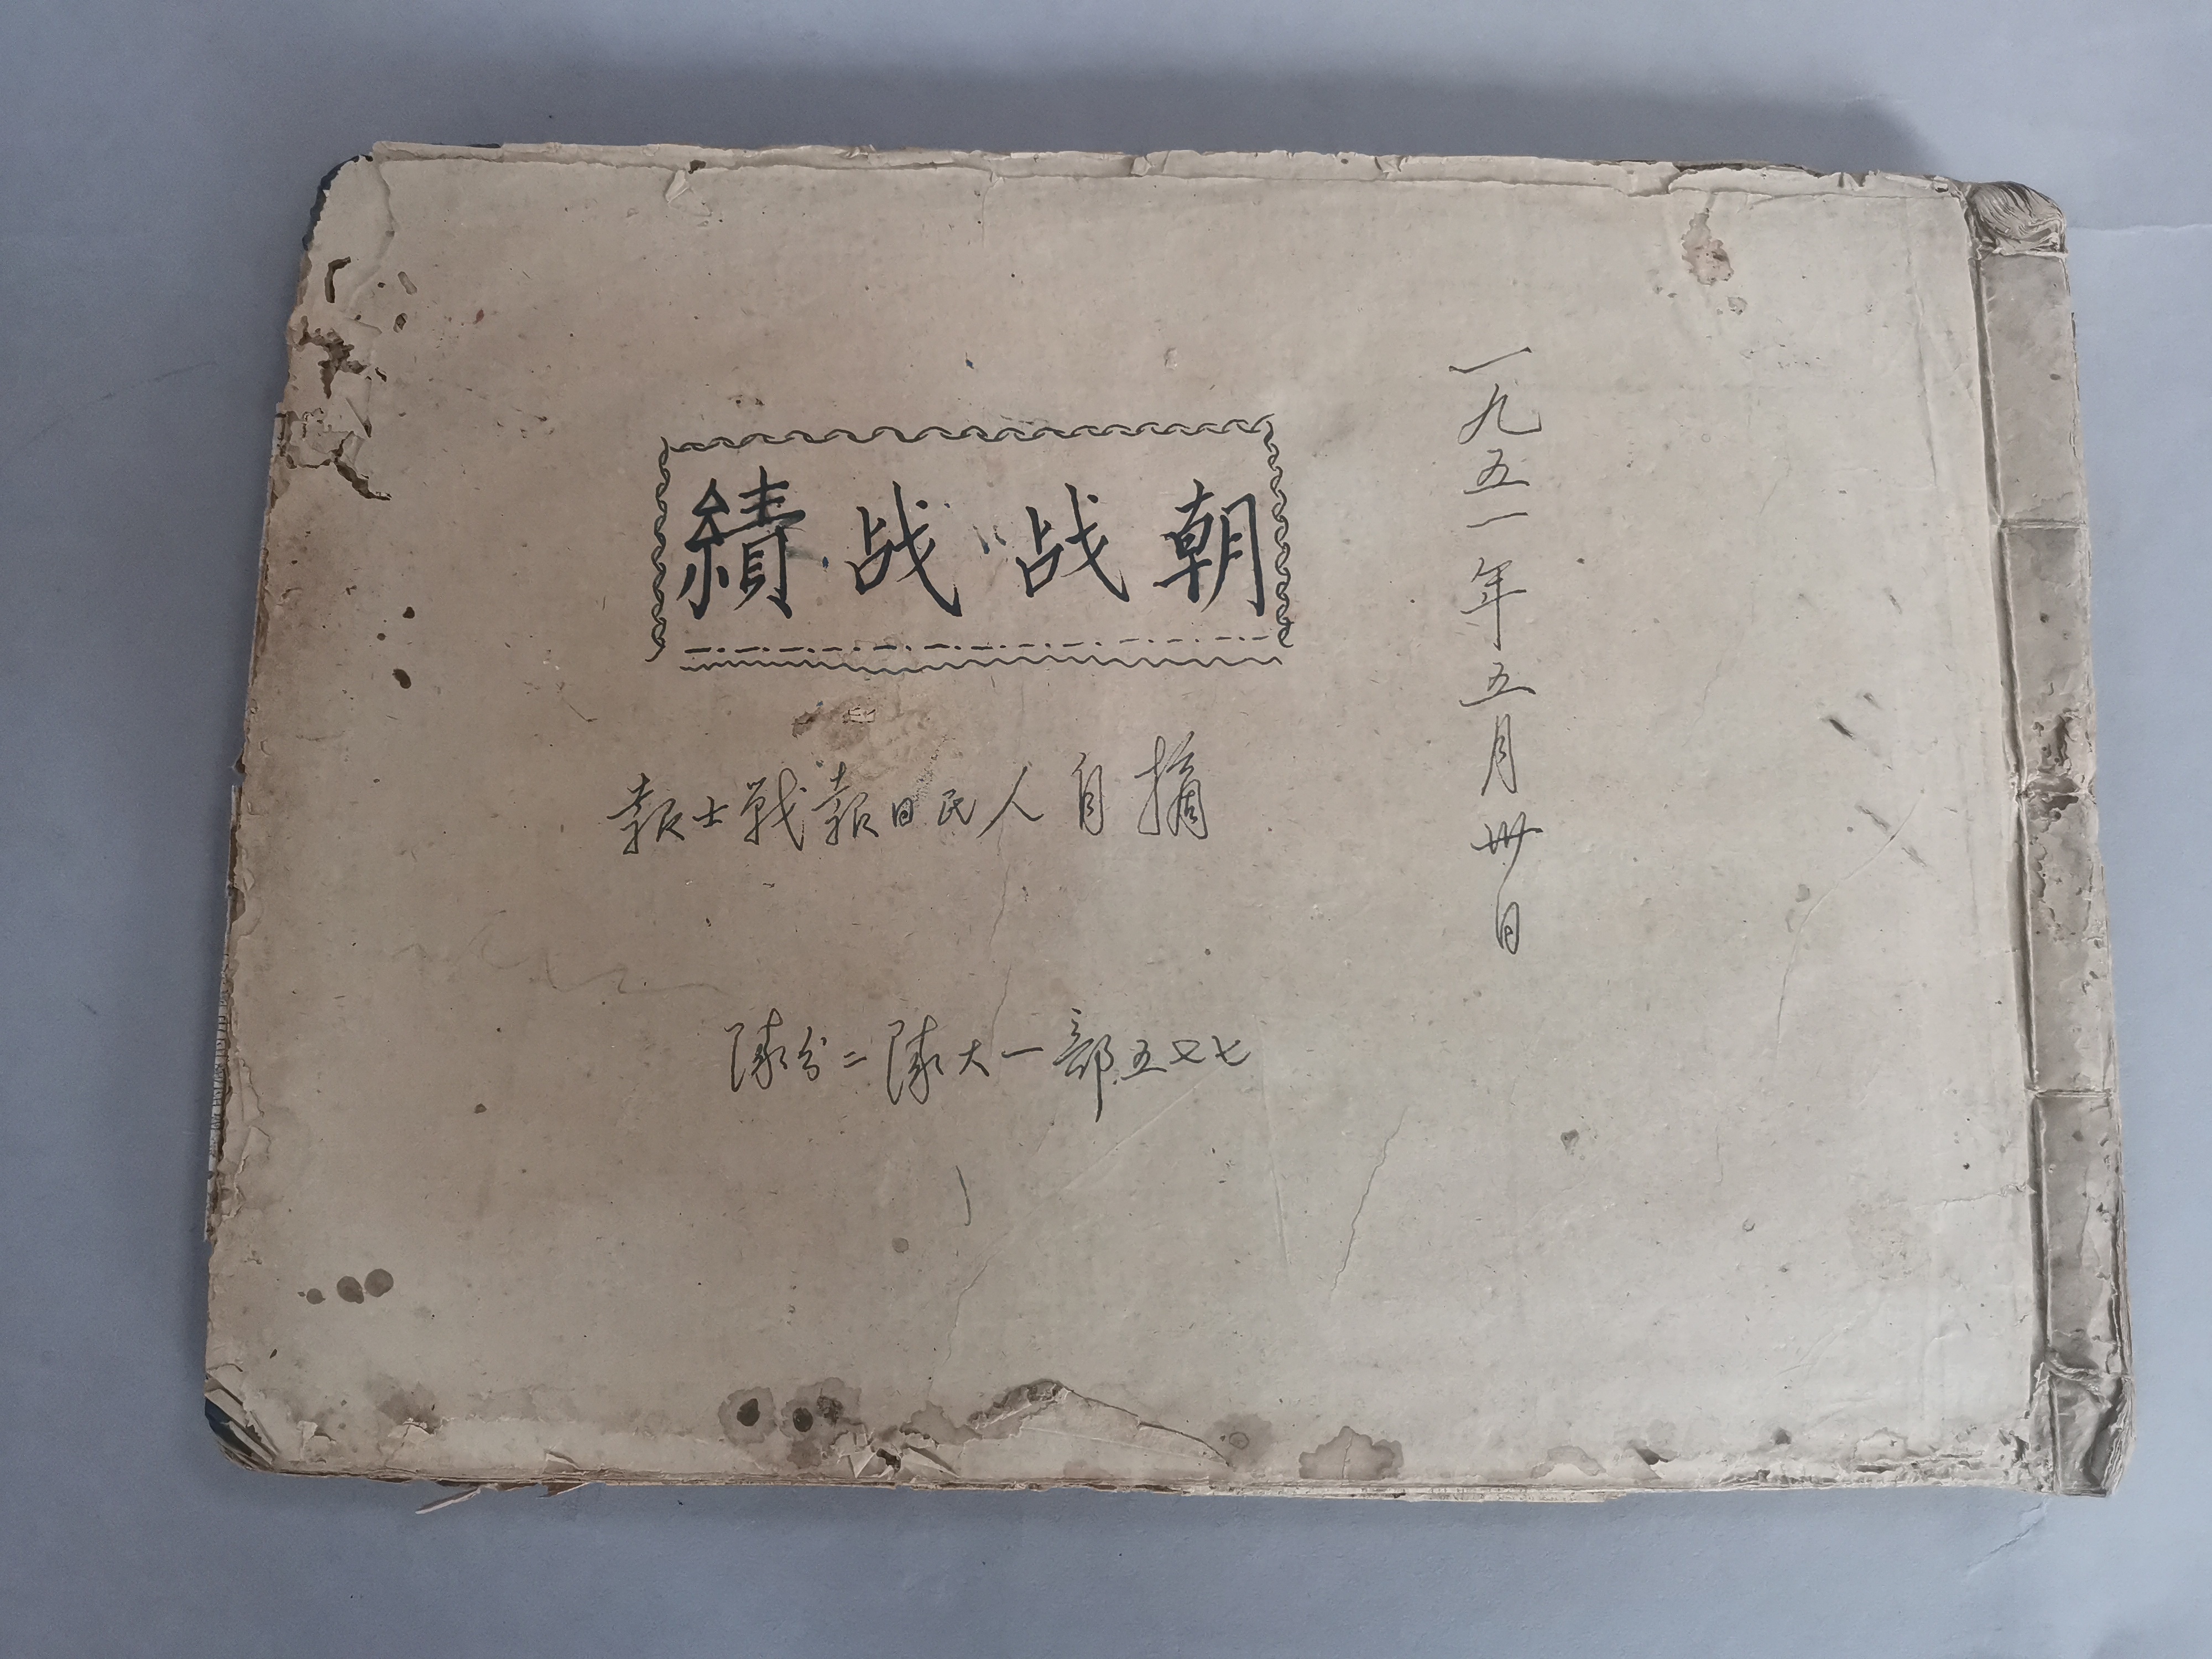 一九五一年五月卅日
朝战战績
摘自人民日報戰士報
七又五部一大隊二分隊